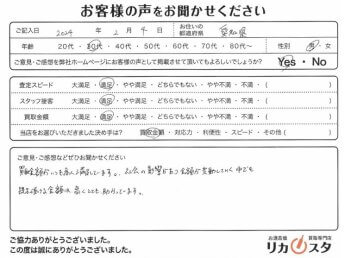 お客様の声をお聞かせください
ご記入日 2024 年 2月 4日 お住いの都道府県 愛知県
年齢 20代・30代・40代・50代・60代・70代・80代〜 性別 男・女
ご意見・ご感想を弊社ホームページにお客様の声として掲載させて頂いてもよろしいでしょうか? Yes・No
査定スピード 大満足・満足・やや満足・どちらでもない・やや不満・不満・( )
スタッフ接客 大満足・満足・やや満足・どちらでもない・やや不満・不満・( )
買取金額 大満足・満足・やや満足・どちらでもない・やや不満・不満・( )
当店をお選びいただきました決め手は? 買取金額・対応力・利便性・スピード・その他( )
ご意見・ご感想などぜひお聞かせください
買取金額がいつも高く満足しています。
の影響があり金額が変動していく中でも
高くとても助かっています。
ご協力ありがとうございました。
この度は誠にありがとうございました。
お酒高価買取専門店
リカスタ